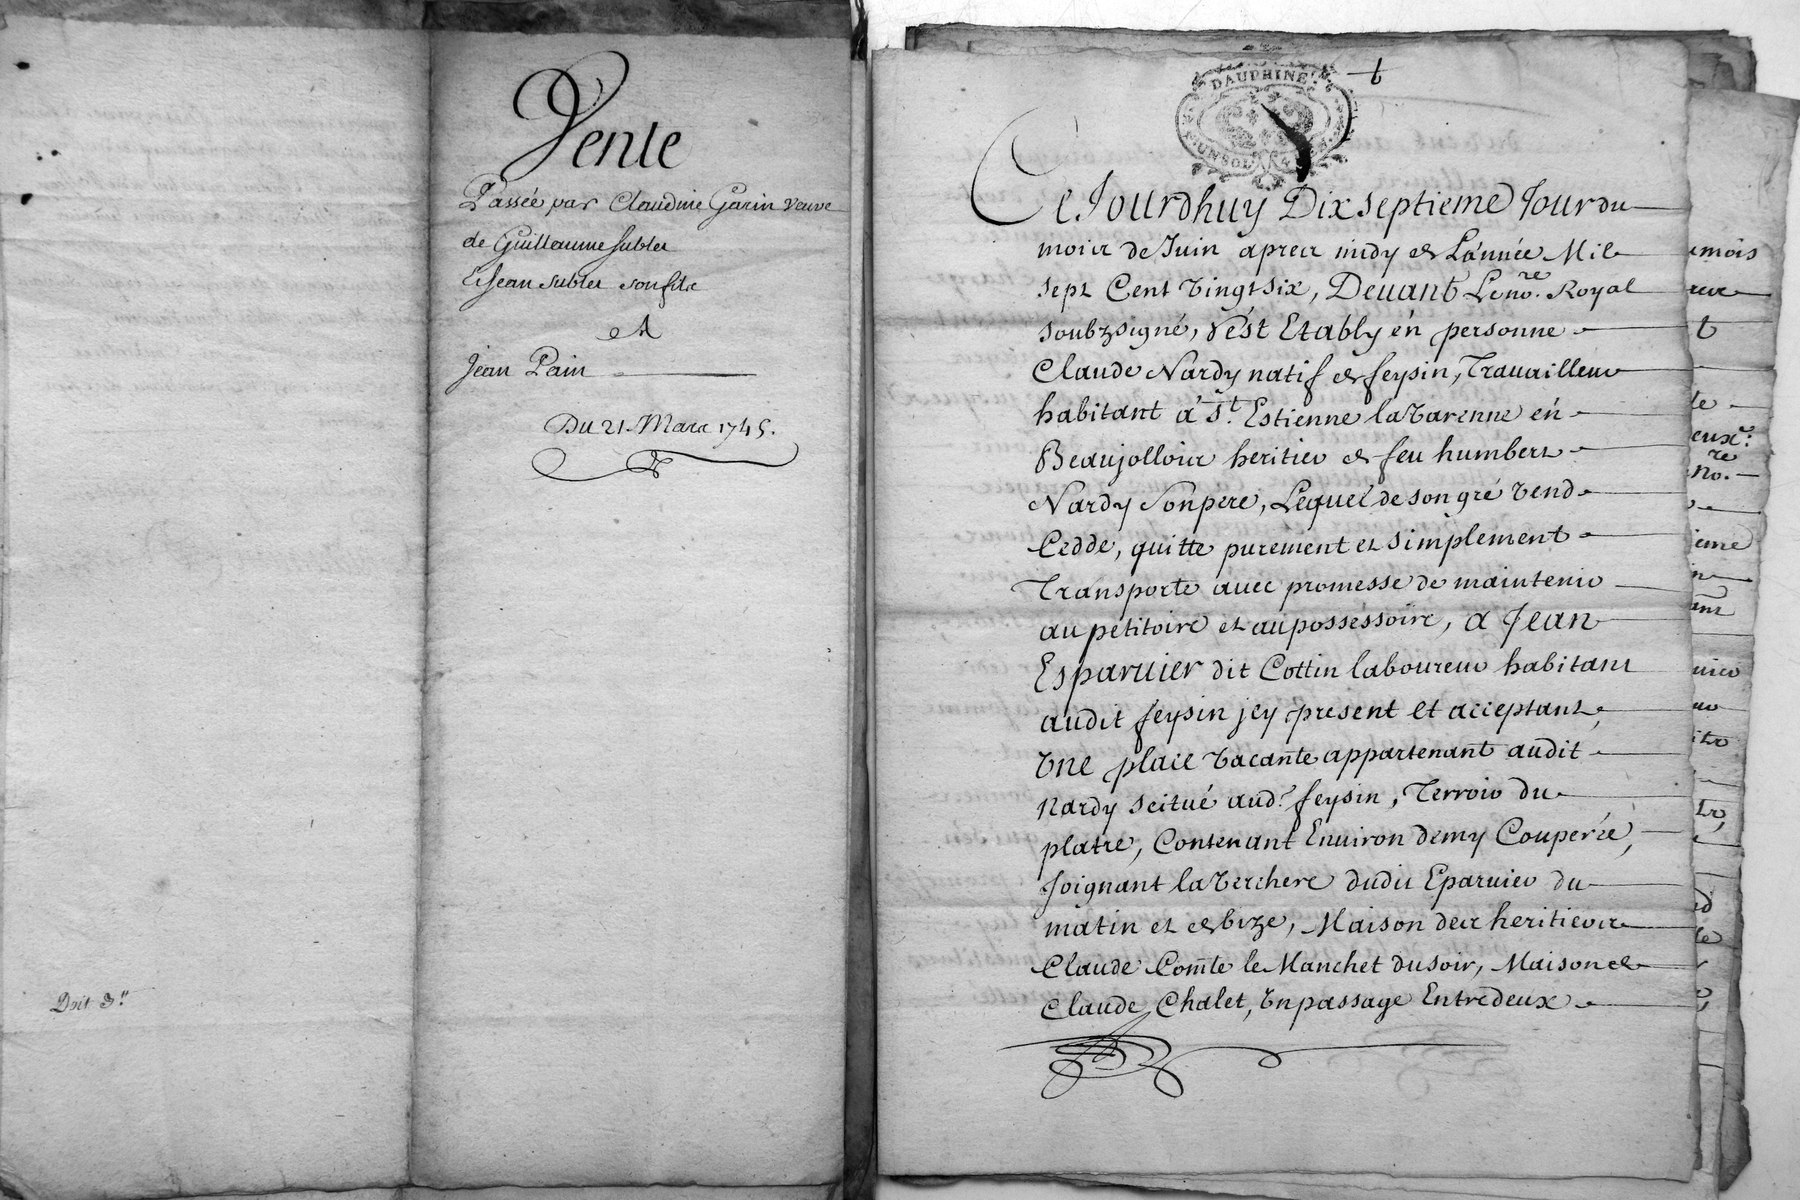 Vente
Passée par Claudine Garin veuve
de Guillaume Sublet
Et Jean Sublet son filz
A
Jean Pain
Du 21. Mars 1745.
Doit 3.lt
DAUPHINÉ
t
Ce Jourdhuy Dix septieme Jour du
mois de Juin apres midy de L'année Mil
sept Cent Vingt six, Devant Le no.re Royal
soubzsigné, s'est Etably en personne
Claude Nardy natif de feysin, Travailleur
habitant a St. Estienne la Varenne en
Beaujollois heritier de feu humbert
Nardy son pere, Lequel de son gré Vend
Cedde, quitte purement et simplement
Transporte avec promesse de maintenir
au petitoire et au possessoire, a Jean
Esparvier dit Cottin laboureur habitant
audit feysin jcy present et acceptant,
Une place Vacante appartenant audit
Nardy scitué aud.t feysin, Terroir du
platre, Contenant Environ demy Couperée,
Joignant la Verchere dudit Eparvier du
matin et de bize, Maison des heritiers
Claude Comte le Manchet du soir, Maison de
Claude Chalet, Un passage Entredeux